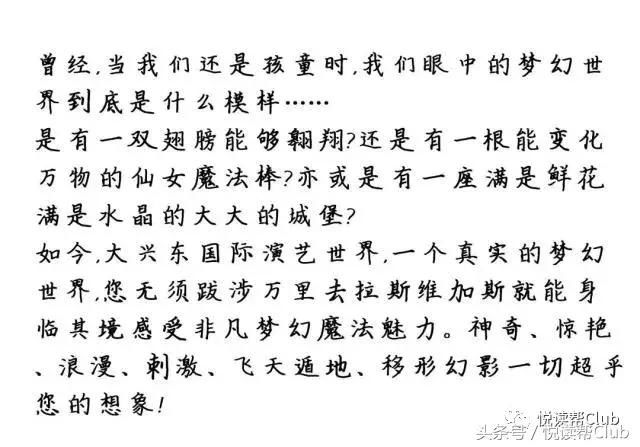 曾经,当我们还是孩童时,我们眼中的梦幻世
界到底是什么模样……
是有一双翅膀能够翱翔?还是有一根能变化
万物的仙女魔法棒?亦或是有一座满是鲜花
满是水晶的大大的城堡?
如今,大兴东国际演艺世界,一个真实的梦幻
世界,您无须跋涉万里去拉斯维加斯就能身
临其境感受非凡梦幻魔法魅力。神奇、惊艳
、浪漫、刺激、飞天遁地、移形幻影一切超乎
您的想象!
悦读帮Club
头条号/悦读帮Club